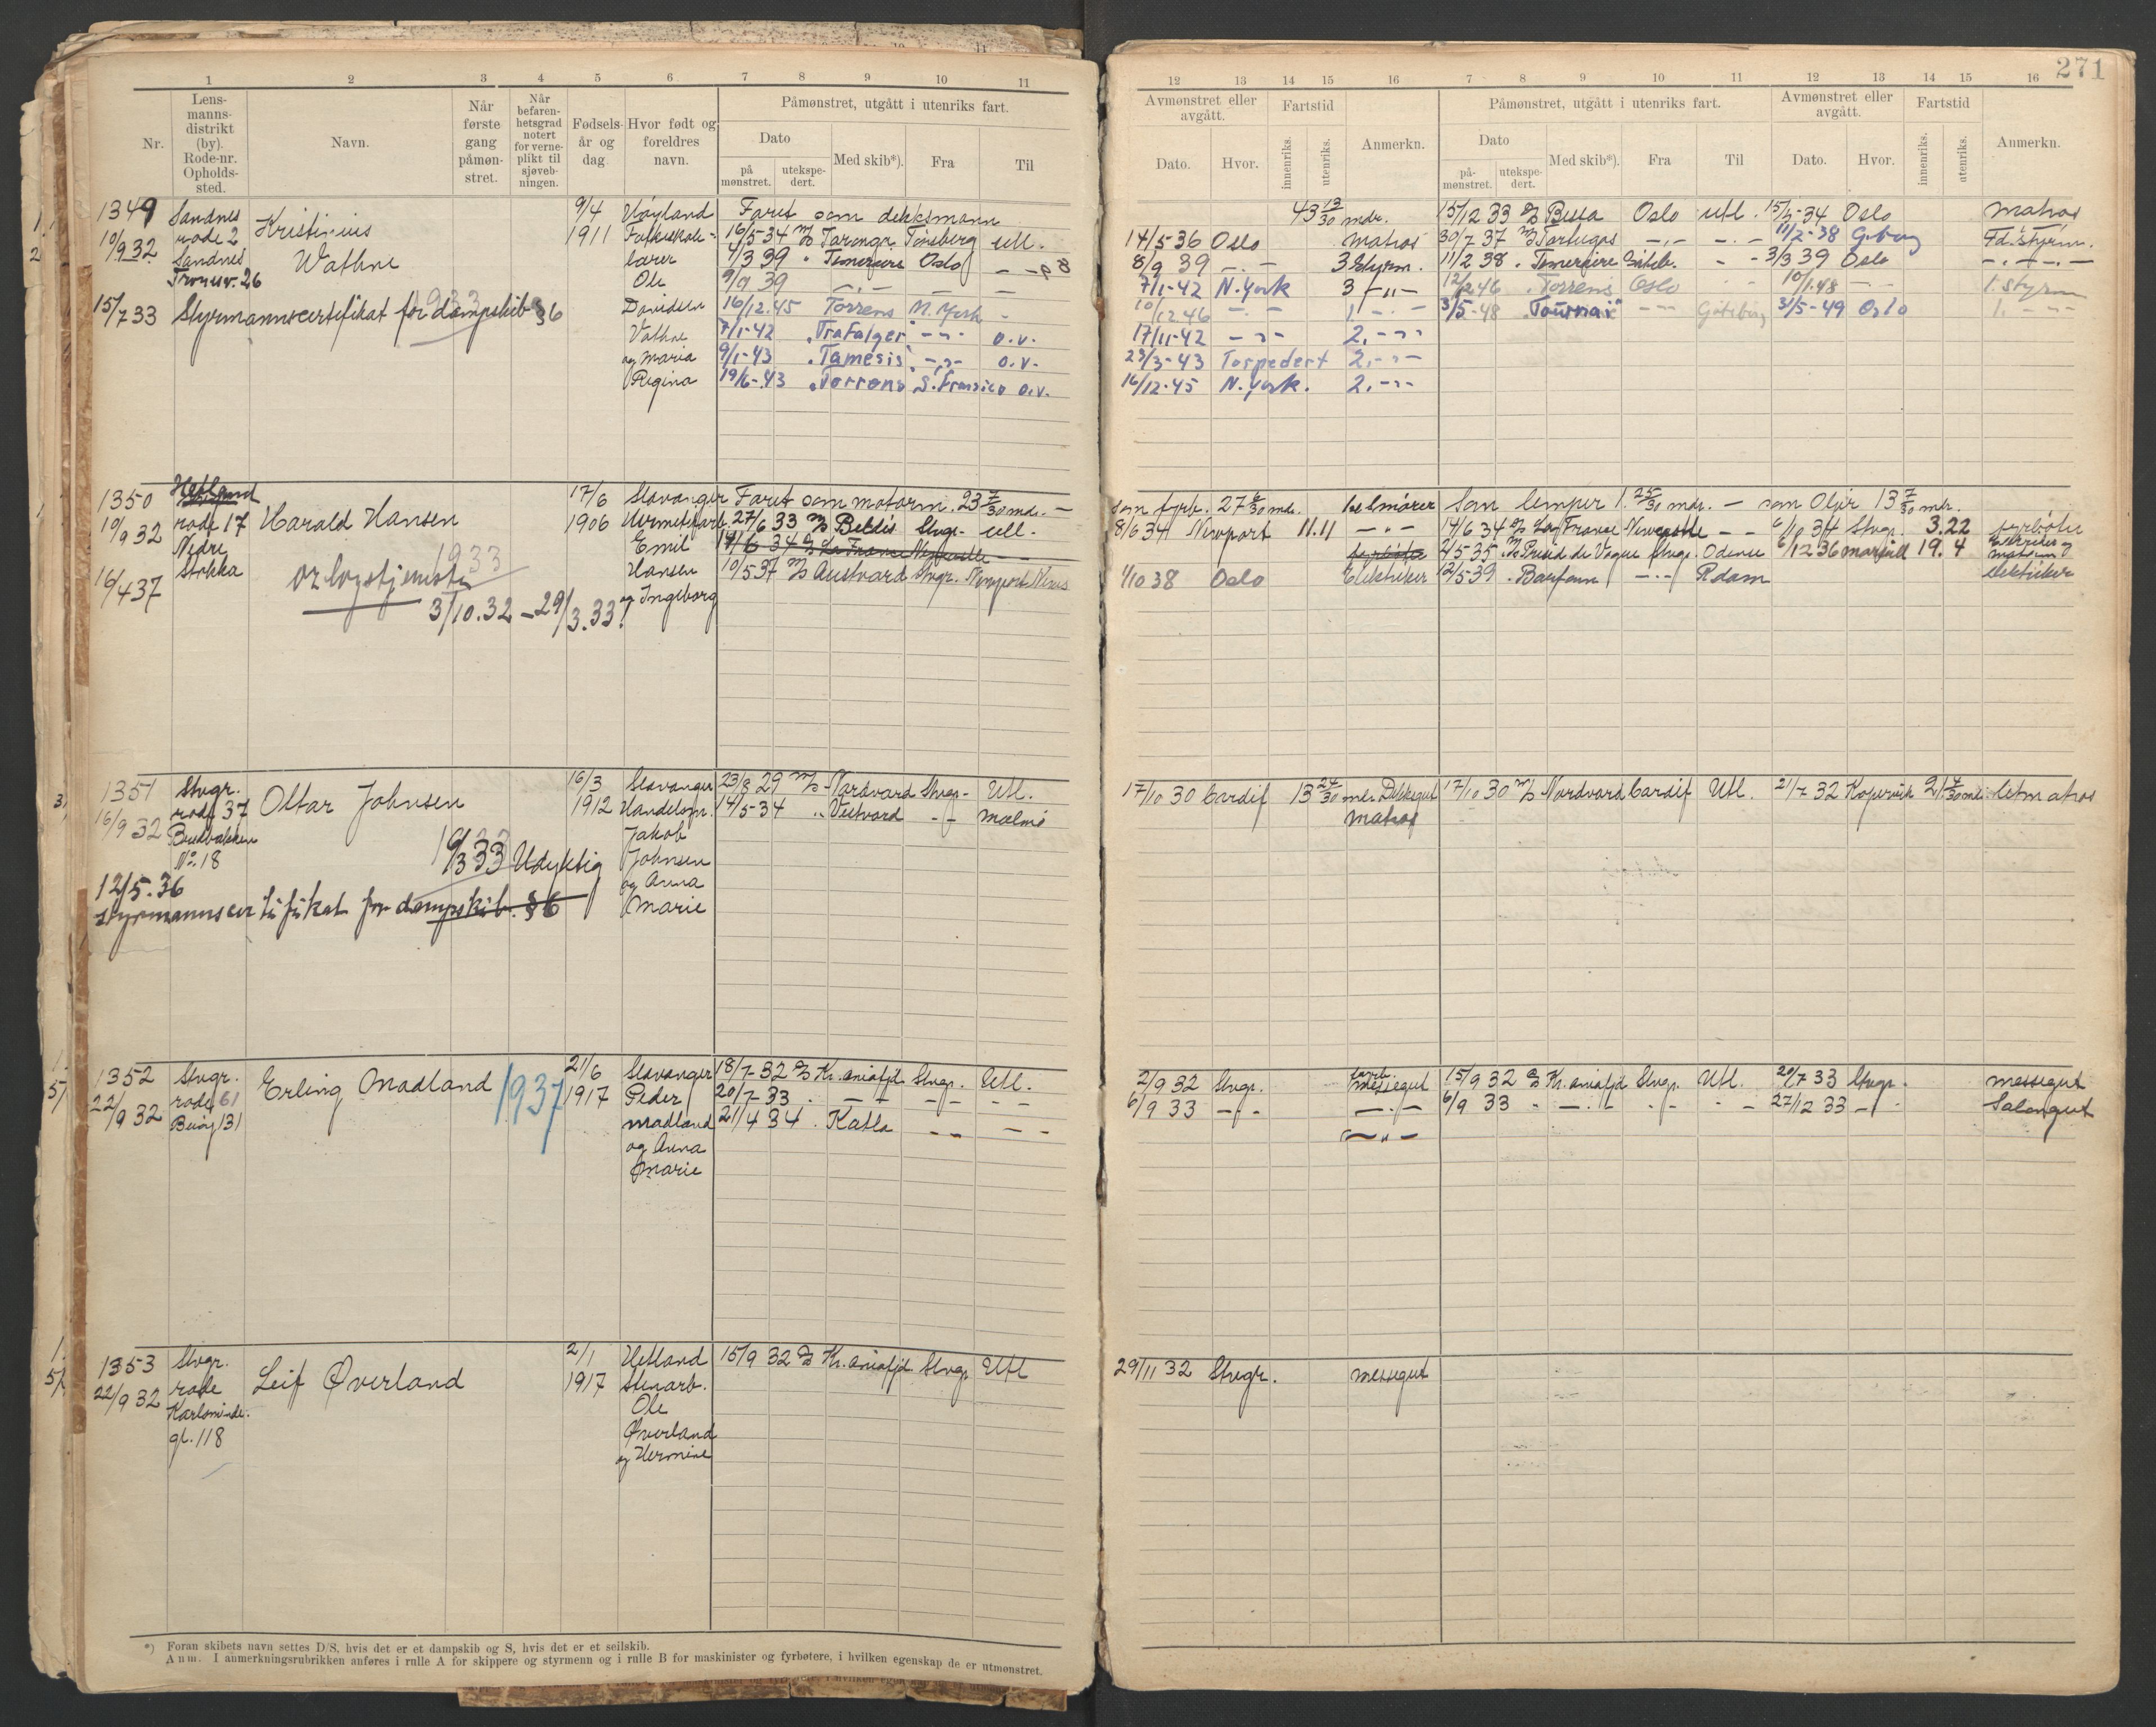 271
1 2 3 4 5 6 7 8 9 10 11
Nr.
Lens-
manns-
distrikt
(by).
Rode-nr.
Opholds-
sted.
Navn.
Når
første
gang
påmøn-
stret.
Når
befaren-
hetsgrad
notert
for verne-
plikt til
sjøveb-
ningen.
Fødsels-
år og
dag.
Hvor født og
foreldres
navn.
Påmønstret, utgått i utenriks fart.
Dato
på
mønstret.
utekspe-
dert.
Med skib*).
Fra
Til
12 13 14 15 16 7 8 9 10 11 12 13 14 15 16
Avmønstret eller
avgått.
Dato. Hvor.
Fartstid
innenriks.
utenriks.
Anmerkn.
Påmønstret, utgått i utenriks fart.
Dato
på-
mønstret.
utekspe-
dert.
Med skib*).
Fra
Til
Avmønstret eller
avgått.
Dato. Hvor.
Fartstid
innenriks.
utenriks.
Anmerkn.
1349
10/9 32
Sandnes
rode 2
Sandnes
Kristinius
Wathne
1933
15/7 33 Styrmannscertifikat for dampskib §6
9/4
1911
Høyland
Folkeskole-
lærer
Ole
Davidsen
Vathne
og Maria
Regina
Faret som dekksmann
16/5 34 Tønsberg utl.
7/3 39 " Temeraire Oslo - -
9/9 39
16/12.45 Torrens N. York -
7/1-42 "Trafalgar" o.v.
9/1-43 "Tamesis" o.v.
19/6-43 "Torrens S. Fransico o.v.
43 13/30 mdr.
14/5 36 Oslo Matros
8/9 39 3 Styrm.
7/11-42 N. York 3
10/12 46 1.
17/11-42 2.
23/3-43 Torpedert 2.
16/12-45 N. York. 2.
15/12 33 Oslo utl. Oslo Matros
30/7 37 Tortugas 11/2-38 G.borg
11/2 38 " Temeraire Göteb. 3/3 39 Oslo
12/2 46 "Torrens Oslo 10/1.48 1. styrm
3/5-48 "Tournai" Göteborg 3/5-49 Oslo 1.
1350
10/9 32
Hetland
rode 17
Nedre
Stokka
16/4 37
Harald Hansen
1933
orlogstjeneste
3/10.32 - 29/3.33.
17/6
1906
Stavanger
Hermetikarb.
Emil
Hansen
og Ingeborg
Faret som motorm. 23 7/30 md. -
27/6 33 Stvgr. utl.
14/6 34 La France Newcastle
10/5 37 Austvard Stvgr. Newport News
som fyrb. 27 mdr. som smører
8/6 34 Newport 11.11
fyrbøter
1/10 38 Oslo Elektriker
Som lemper 1. 25/30 mdr. - som Oljer 13 7/30 mdr.
14/6 34 La France Newcastle - - 6/10 34 Stvgr. 3.22 fyrbøter
Stvgr. Odense 6/12 36 19. 4
12/5-39 R.dam elektriker
1351
16/9 32
Stvgr.
rode 37
Breidbakken
No. 18
Ottar Johnsen
1933
Udyktig
12/5.36
styrmannscertifikat for dampskib. §6
16/3
1912
Stavanger
Handelsm.
Jakob
Johnsen
og Anna
Marie
23/8 29 Nordvard Stvgr- Utl.
14/5-34 " Vestvard Malmö
17/10 30 Cardif 13 24/30 mdr. Dekksgut
Matros
17/10 30 Nordvard Cardif Utl. 21/7 32 Kopervik 21 4/30 md. letmatros
1352
22/9 32
Stvgr.
rode 61
Erling Madland
1937
21/6
1917
Stavanger
Peder
Madland
og Anna
Marie
18/7-32 Kr.aniafjd Stvgr. Utl.
20/7-33
21/4 34 . Katla
2/9 32 Stvgr. messegut
6/9 33
15/9 32 Kr.aniafjd Stvgr. Utl. 20/7 33 Stvgr. messegut
6/9 33 27/12 33 Salongut
1353
22/9 32
Stvgr.
rode
Karlsminde-
gt. 118
Leif Øverland
2/1
1917
Hetland
Stenarb.
Ole
Øverland
og Hermine
15/9 32 Kr.aniafjd Stvgr. Utl
29/11 32 Stvgr. messegut
*) Foran skibets navn settes D/S, hvis det er et dampskib og S, hvis det er et seilskib.
Anm. I anmerkningsrubrikken anføres i rulle A for skippere og styrmenn og i rulle B for maskinister og fyrbøtere, i hvilken egenskap de er utmønstret.